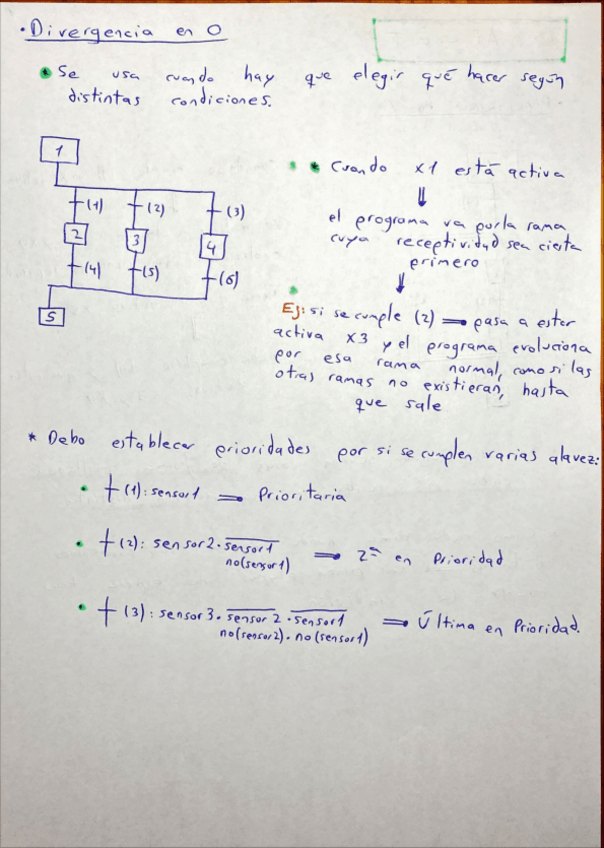 · Divergencia en O
Se usa cuando hay que elegir qué hacer según
distintas condiciones.
1
(1)
(2)
(3)
2
3
4
(4)
(5)
(6)
5
* Cuando x1 está activa
⇓
el programa va por la rama
cuya receptividad sea cierta
primero
⇓
Ej: si se cumple (2) ⇒ pasa a estar
activa x3 y el programa evoluciona
por esa rama normal, como si las
otras ramas no existieran, hasta
que sale
* Debo establecer prioridades por si se cumplen varias alavez:
(1): sensor1 ⇒ Prioritaria
(2): sensor2 · s̅e̅n̅s̅o̅r̅1̅ ⇒ 2ª en Prioridad
no(sensor1)
(3): sensor3 · s̅e̅n̅s̅o̅r̅ ̅2̅ · s̅e̅n̅s̅o̅r̅1̅ ⇒ Última en Prioridad.
no(sensor2) · no(sensor1)